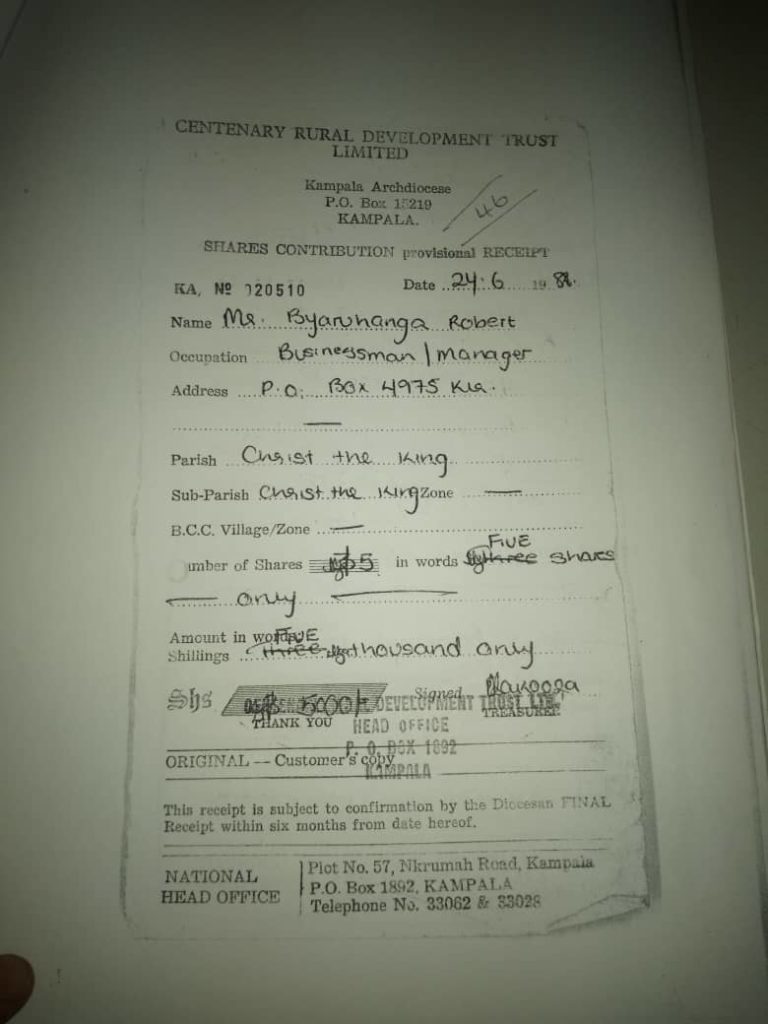 CENTENARY RURAL DEVELOPMENT TRUST
LIMITED
Kampala Archdiocese
P.O. Box 15219
KAMPALA.
46
SHARES CONTRIBUTION provisional RECEIPT
KA, № 020510 Date 24.6 19 88.
Name Mr. Byaruhanga Robert
Occupation Businessman / Manager
Address P.O. Box 4975 Kla.
Parish Christ the King
Sub-Parish Christ the King Zone
B.C.C. Village/Zone
umber of Shares 5 in words FIVE three shares
only
Amount in words FIVE
Shillings three thousand only
Shs 5000/= Signed
THANK YOU TREASURER
DEVELOPMENT TRUST LTD.
HEAD OFFICE
P. O. BOX 1892
KAMPALA
ORIGINAL -- Customer's copy
This receipt is subject to confirmation by the Diocesan FINAL
Receipt within six months from date hereof.
NATIONAL
HEAD OFFICE
Plot No. 57, Nkrumah Road, Kampala
P.O. Box 1892, KAMPALA
Telephone No. 33062 & 33028